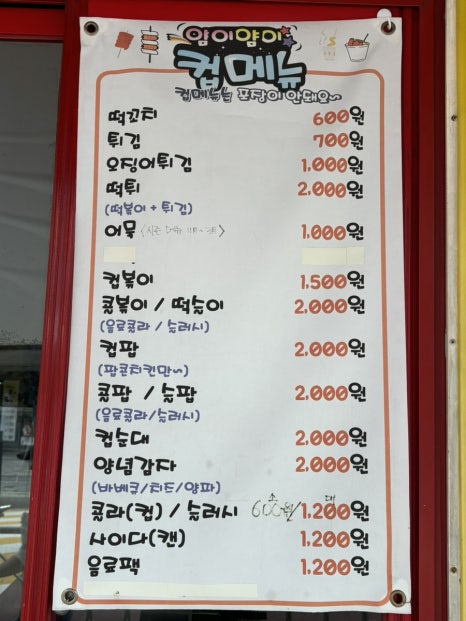 얌이얌이
컵메뉴
컵메뉴는 포장이 안돼요~
떡꼬치 600원
튀김 700원
오징어튀김 1,000원
떡튀 2,000원
(떡볶이 + 튀김)
어묵 1,000원
컵볶이 1,500원
콜볶이 / 떡슬이 2,000원
(음료콜라 / 슬러시)
컵팝 2,000원
(팝콘치킨만~)
콜팝 / 슬팝 2,000원
(음료콜라/슬러시)
컵순대 2,000원
양념감자 2,000원
(바베큐/치즈/양파)
콜라(컵) / 슬러시 소 600원/ 대 1,200원
사이다(캔) 1,200원
음료팩 1,200원